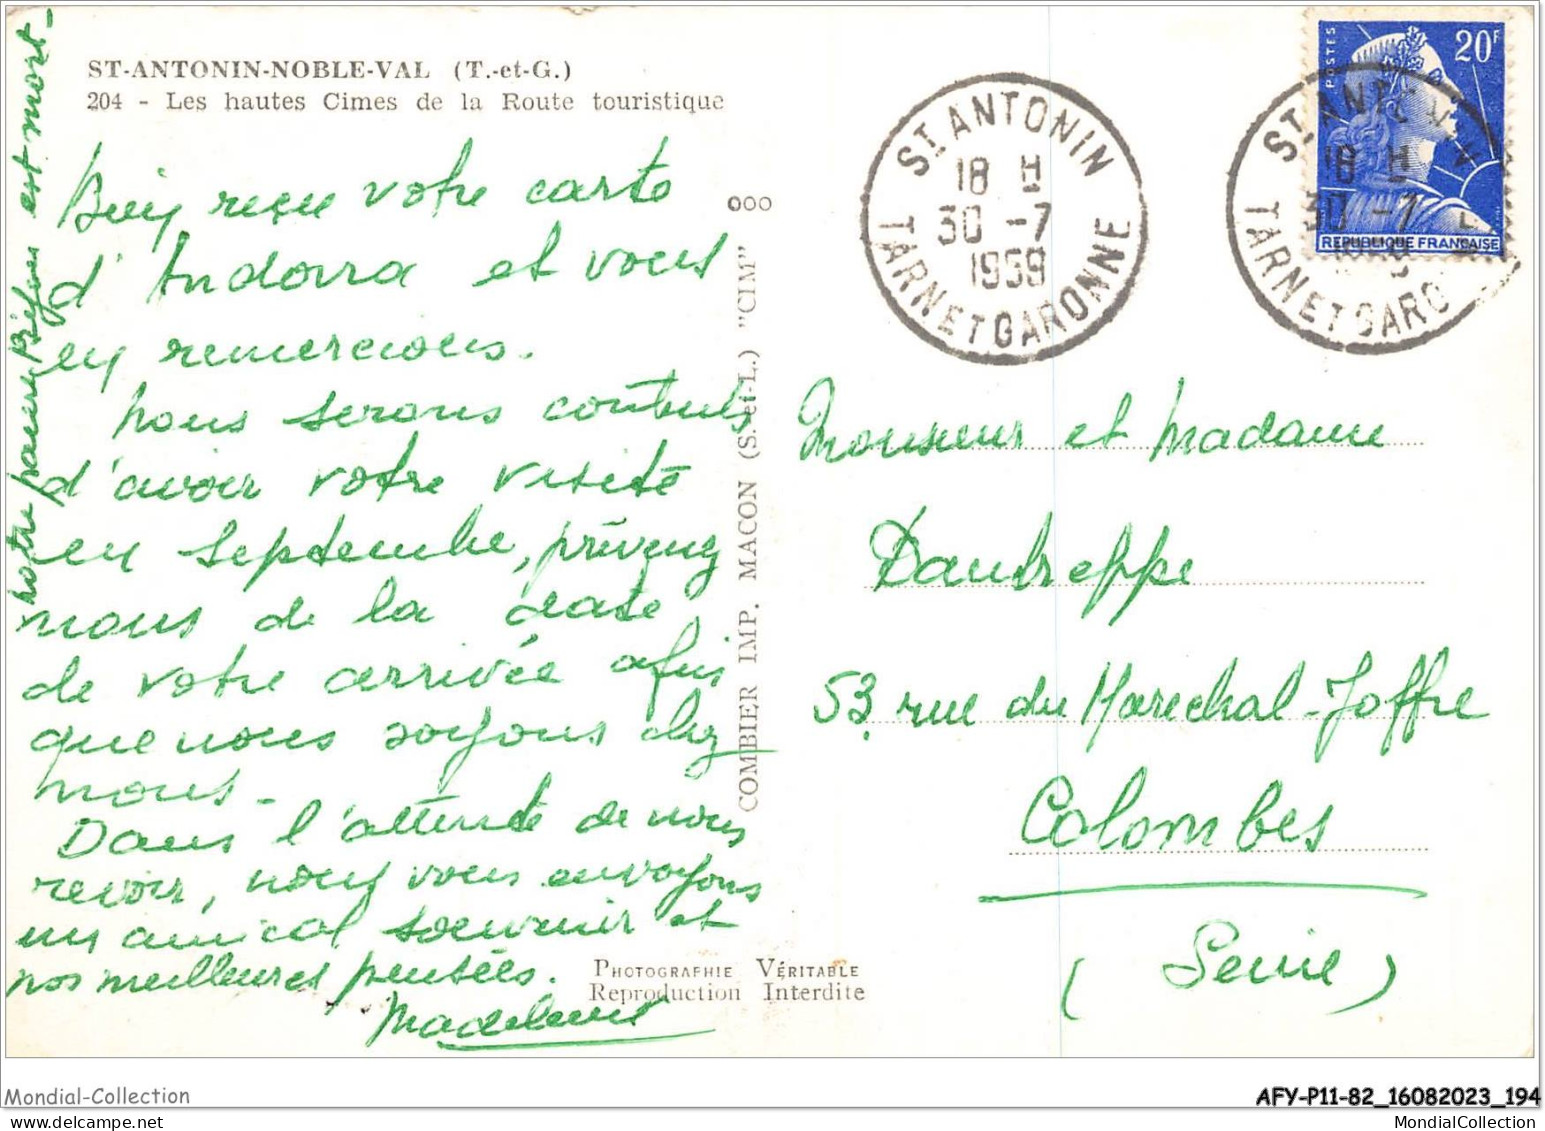 ST-ANTONIN-NOBLE-VAL (T.-et-G.)
204 - Les hautes Cimes de la Route touristique
Bien reçu votre carte
d'Andorra et vous
en remercions.
nous serons contents
d'avoir votre visite
en septembre, prévenez
nous de la date
de votre arrivée afin
que nous soyons chez
nous-
Dans l'attente de nous
revoir, nous vous envoyons
un amical souvenir et
nos meilleures pensées.
Madeleine
notre pauvre est mort-
000
COMBIER IMP. MACON (S.-et-L.) "CIM"
PHOTOGRAPHIE VÉRITABLE
Reproduction Interdite
ST ANTONIN
18 H
30 -7
1959
TARN ET GARONNE
ST ANTONIN
18 H
30 -7
TARN ET GARO
POSTES
20F
REPUBLIQUE FRANÇAISE
Monsieur et Madame
Dautreppe
53 rue du Marechal-Joffre
Colombes
(Seine)
Mondial-Collection
AFY-P11-82_16082023_194
MondialCollection